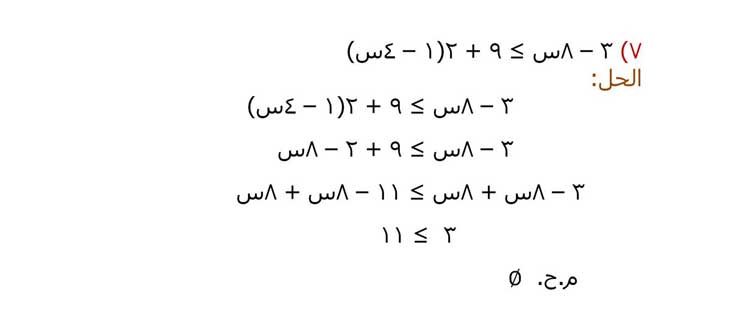 ٧) ٣ – ٨س ≥ ٩ + ٢(١ – ٤س)
الحل:
٣ – ٨س ≥ ٩ + ٢(١ – ٤س)
٣ – ٨س ≥ ٩ + ٢ – ٨س
٣ – ٨س + ٨س ≥ ١١ – ٨س + ٨س
٣ ≥ ١١
م.ح. Ø